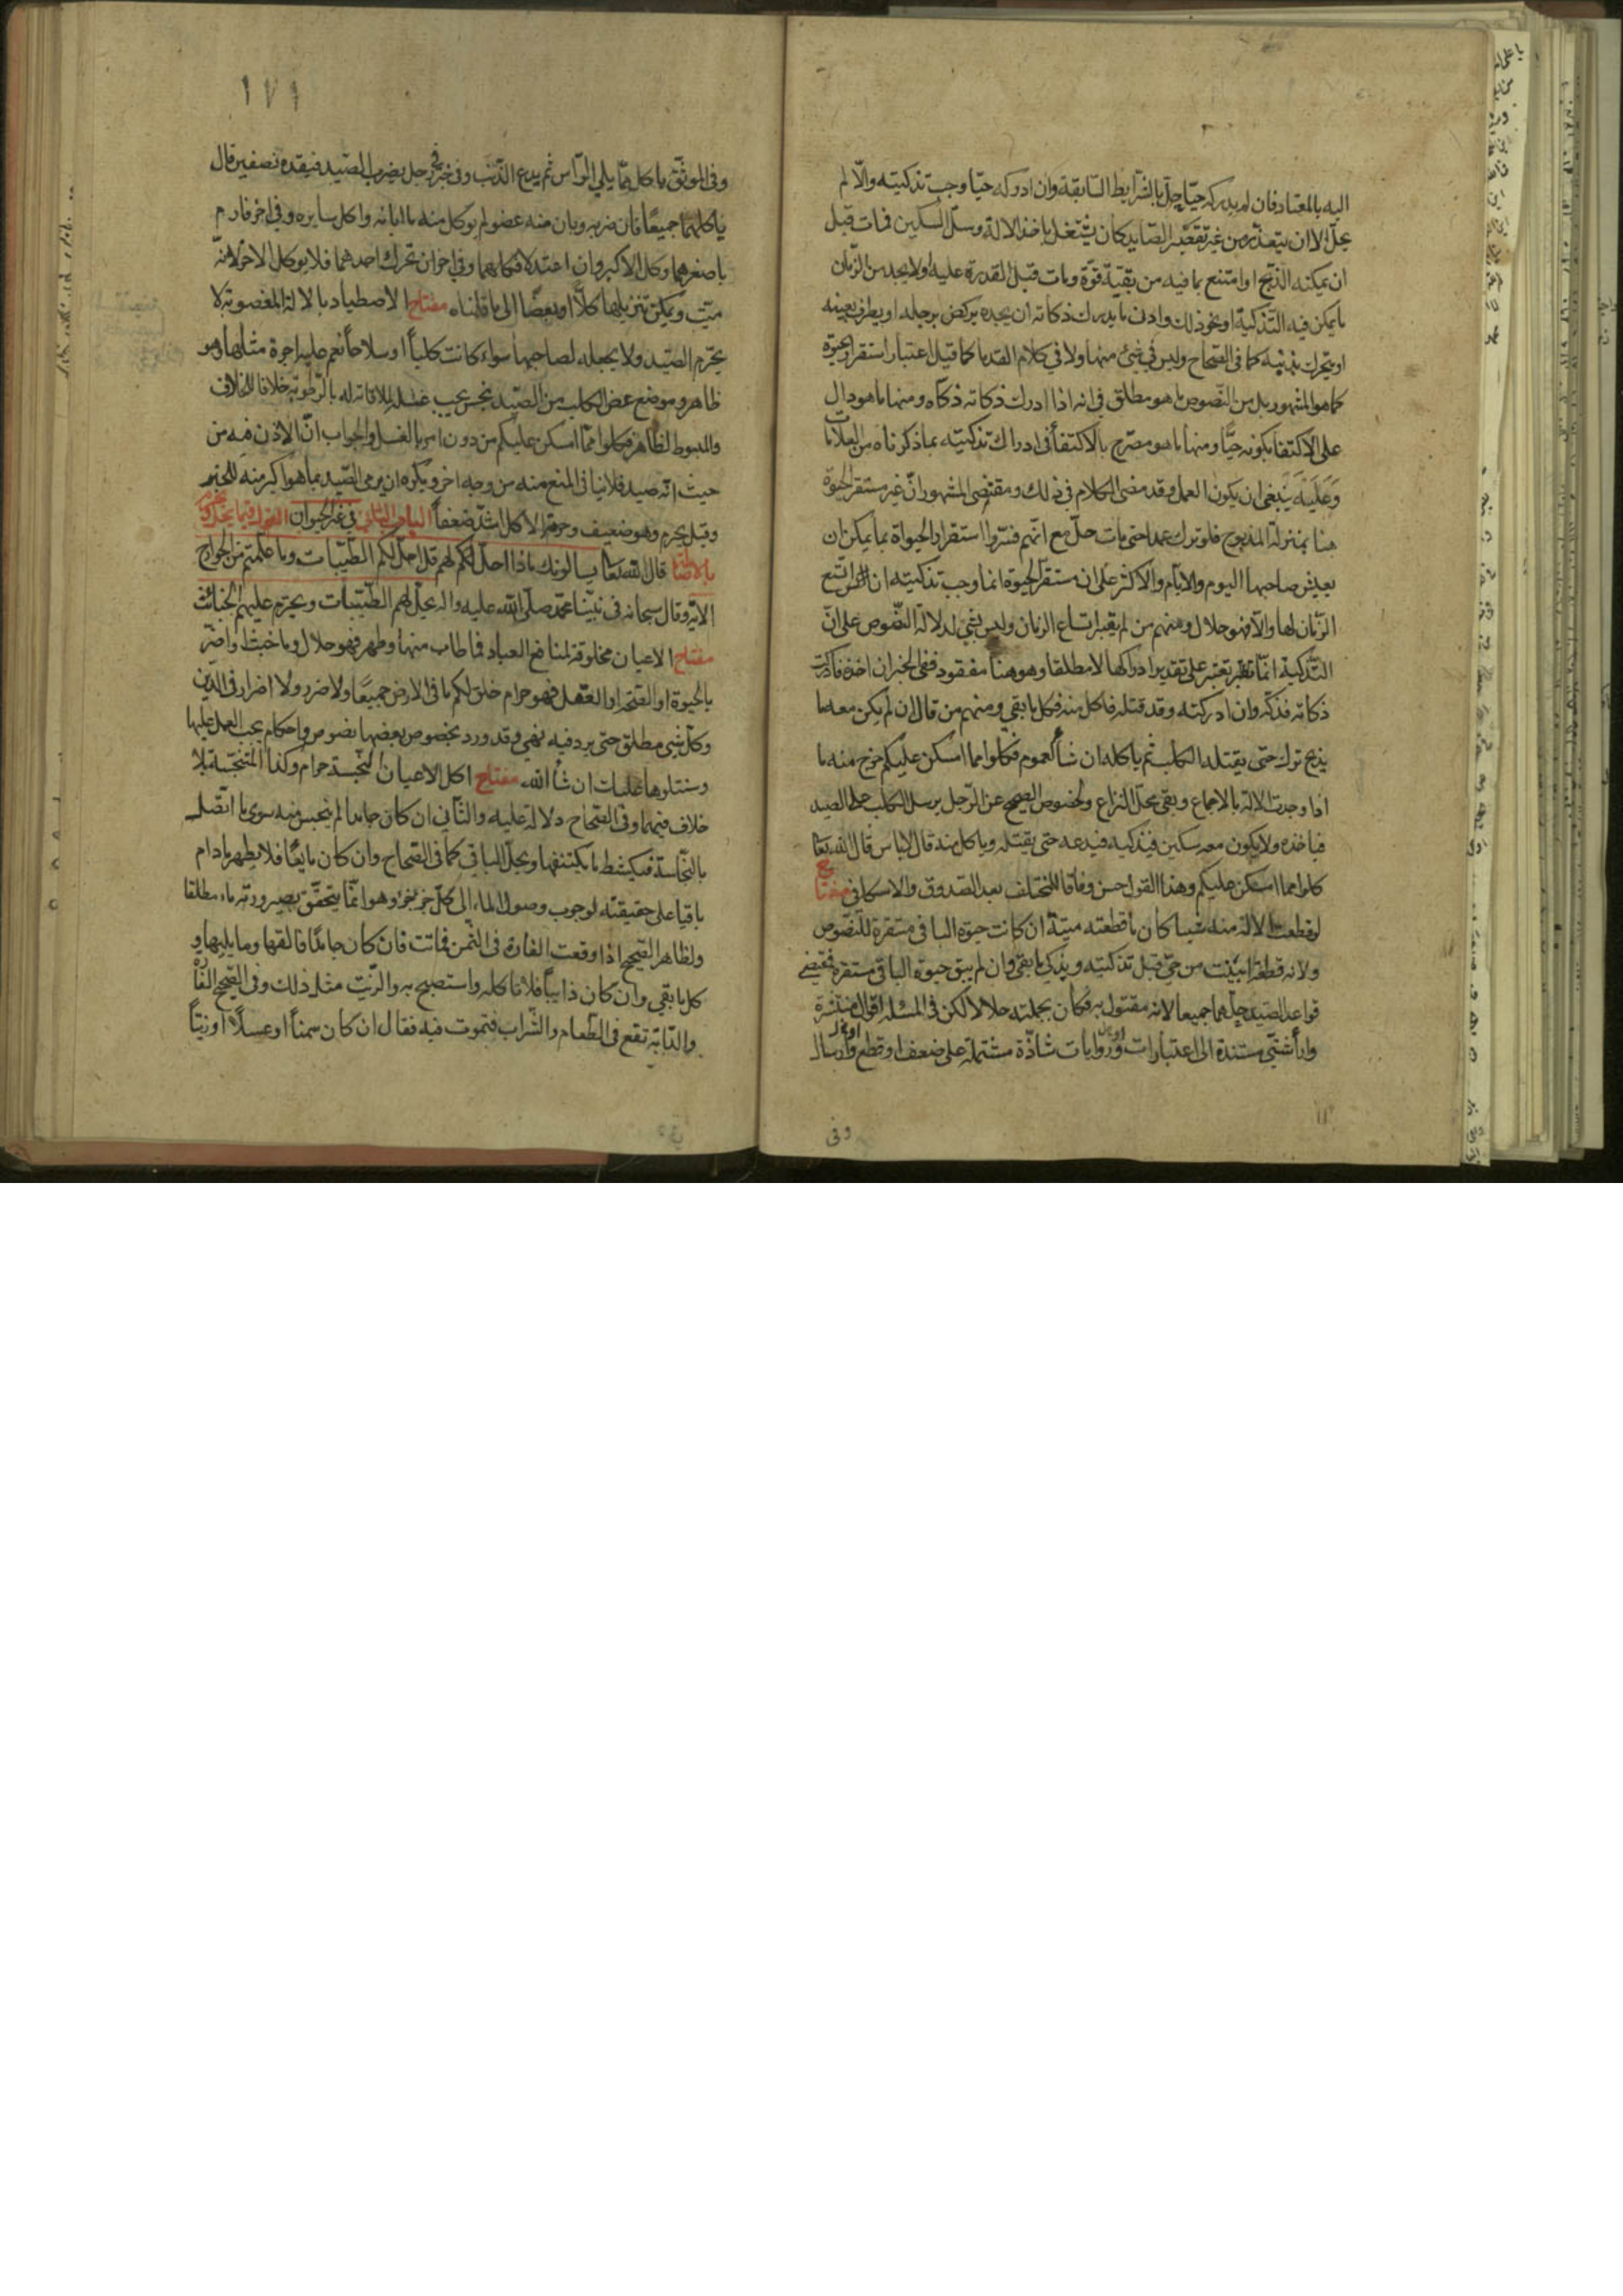 اليه بالمعتاد فان لم يدركه حيّا حلّ بالشرايط السّابقة وان ادركه حيّا وجب تذكيته والّا لم
يحلّ الا ان يتعذّر من غير تقصير الصّايد كان يشتغل باخذ الالة وسلّ السكين فمات قبل
ان يمكنه الذّبح او امتنع بما فيه من بقيّة قوّة ومات قبل القدرة عليه او لا يجد من الزمان
ما يمكن فيه التّذكية او نحو ذلك وادنى ما يدرك ذكاته ان يجده يركض برجله او يطرف بعينه
او يتحرك ذنبه كما فى الصّحاح وليس فى شئ منها ولا فى كلام القدما كما قيل اعتبار استقرار الحيوة
كما هو المشهور بل من النّصوص ما هو مطلق فى انه اذا ادرك ذكاته ذكاه ومنها ما هو دال
على الاكتفا بكونه حيّا ومنها ما هو مصّرح بالاكتفأ فى ادراك تذكيته بما ذكرناه من العلامات
وَعَلَيه يَنبغى ان يكون العمل وقد مضى الكلام فى ذلك ومقتضى المشهور انّ غير مستقر الحيوة
هنا بمنزلة المذبوح فلو ترك عمدا حتى مات حلّ مع انّهم فسّروا استقرار الحيواة بما يمكن ان
يعيش صاحبها اليوم والايام والاكثر على ان مستقرّ الحيوة انما وجب تذكيته ان اتّسع
الزّمان لها والّا فهو حلال ومنهم من لم يعتبر اتساع الزمان وليس بشئ لدلالة النّصوص على انّ
التّذكية انّما تعتبر على تقدير ادراكها لا مطلقا وهو هنا مفقود ففى الخبر ان اخذه فادركت
ذكاته فذكّه وان ادركته وقد قتله فاكل منه فكل ما بقى ومنهم من قال ان لم يكن معه ما
يذبح ترك حتى يقتله الكلب ثم ياكله ان شأ لعموم فكلوا مما امسكن عليكم خرج منه ما
اذا وجدت الالة بالاجماع وبقى محلّ النزاع ولخصوص الصحيح عن الرّجل يرسل الكلب على الصيد
فياخذه ولا يكون معه سكين فيذكيه فيدعه حتى يقتله وياكل منه قال لا باس قال الله تعا
كلوا مما امسكن عليكم وهذا القول حسن وفاقا للمختلف بعد الصّدوق والاسكافى مفتاح
لو قطعت الالة منه شيا كان ما قطعته ميتة ان كانت حيوة الباقى مستقرة للنّصوص
ولانه قطعة ابينت من حىّ قبل تذكيته ويذكى ما بقى وان لم يبق حيوة الباقى مستقرة فمقتضى
قواعد الصّيد حلّهما جميعا لانه مقتول به فكان بجملته حلالا لكن فى المسئلة اقوال منتشرة
واراء شتى مستندة الى اعتبارات وروايات شاذّة مشتملة على ضعف او قطع وارسال
وفى
١٧١
وفى الموثّق ما كل ممّا يلى الرّاس ثم يدع الذّنب وفى خبر رجل يضرب الصّيد فيقده نصفين قال
ياكلهما جميعًا فان ضربه وبان منه عضو لم يوكل منه ما ابانه واكل سايره وفى اخر فارم
باصغرهما وكل الاكبر وان اعتدلا فكلهما وفى اخر ان تحرك احدهما فلا يوكل الاخر لانّه
ميّت ويمكن تنزيلها كلاً او بعضًا الى ما قلناه مفتاح الاصطياد بالالة المغصوبة لا
يحّرم الصّيد ولا يجعله لصاحبها سواء كانت كلباً او سلاحاً نعم عليه اجرة مثلها وهو
ظاهر وموضع عض الكلب من الصّيد نجس يجب غسله لملاقاته له بالرّطوبة خلافا للخلاف
والمبسوط لظاهر فكلوا ممّا امسكن عليكم من دون امر بالغسل والجواب انّ الاذن فيه من
حيث انّه صيد فلا ينافى المنع منه من وجه اخر ويكره ان يرمى الصّيد بما هو اكبر منه للخبر
وقيل يحرم وهو ضعيف وحرمة الاكل اشدّ ضعفاً الباب الثانى فى غير الحيوان القول فيما يحل ويحرم
بالاصالة قال الله تعا يسالونك ماذا احل لهم قل احلّ لكم الطّيبات وما علّمتم من الجوارح
الاية وقال سبحانه فى نبيّنا محمّد صلّى الله عليه واله يحلّ لهم الطّيبات ويحرّم عليهم الخبائث
مفتاح الاعيان مخلوقة لمنافع العباد فما طاب منها وطهر فهو حلال وما خبث او اضرّ
بالحيوة او الصّحة او العقل فهو حرام خلق لكم ما فى الارض جميعًا ولا ضرر ولا اضرار فى الدّين
وكلّ شئ مطلق حتى يرد فيه نهى وقد ورد بخصوص بعضها نصوص واحكام يجب العمل عليها
وسنتلوها عليك ان شأ الله مفتاح اكل الاعيان النّجسة حرام وكذا المتنجّسة بلا
خلاف فيهما وفى الصّحاح دلالة عليه والثّانى ان كان جامدا لم ينجس منه سوى ما اتّصل
بالنّجاسة فيكشط ما يكتنفها ويحلّ الباقى كما فى الصّحاح وان كان مايعًا فلا يطهر ما دام
باقيا على حقيقته لوجوب وصول الماء الى كلّ جزء جزء وهو انّما يتحقّق بصيرورته ماء مطلقا
ولظاهر الصّحيح اذا وقعت الفارة فى السّمن فماتت فان كان جامدًا فالقها وما يليها و
كل ما بقى وان كان ذايباً فلا تاكله واستصبح به والزّيت مثل ذلك وفى الصّحيح الفارة
والدّابّة تقع فى الطّعام والشّراب فتموت فيه فقال ان كان سمناً او عسلاً او زيتاً